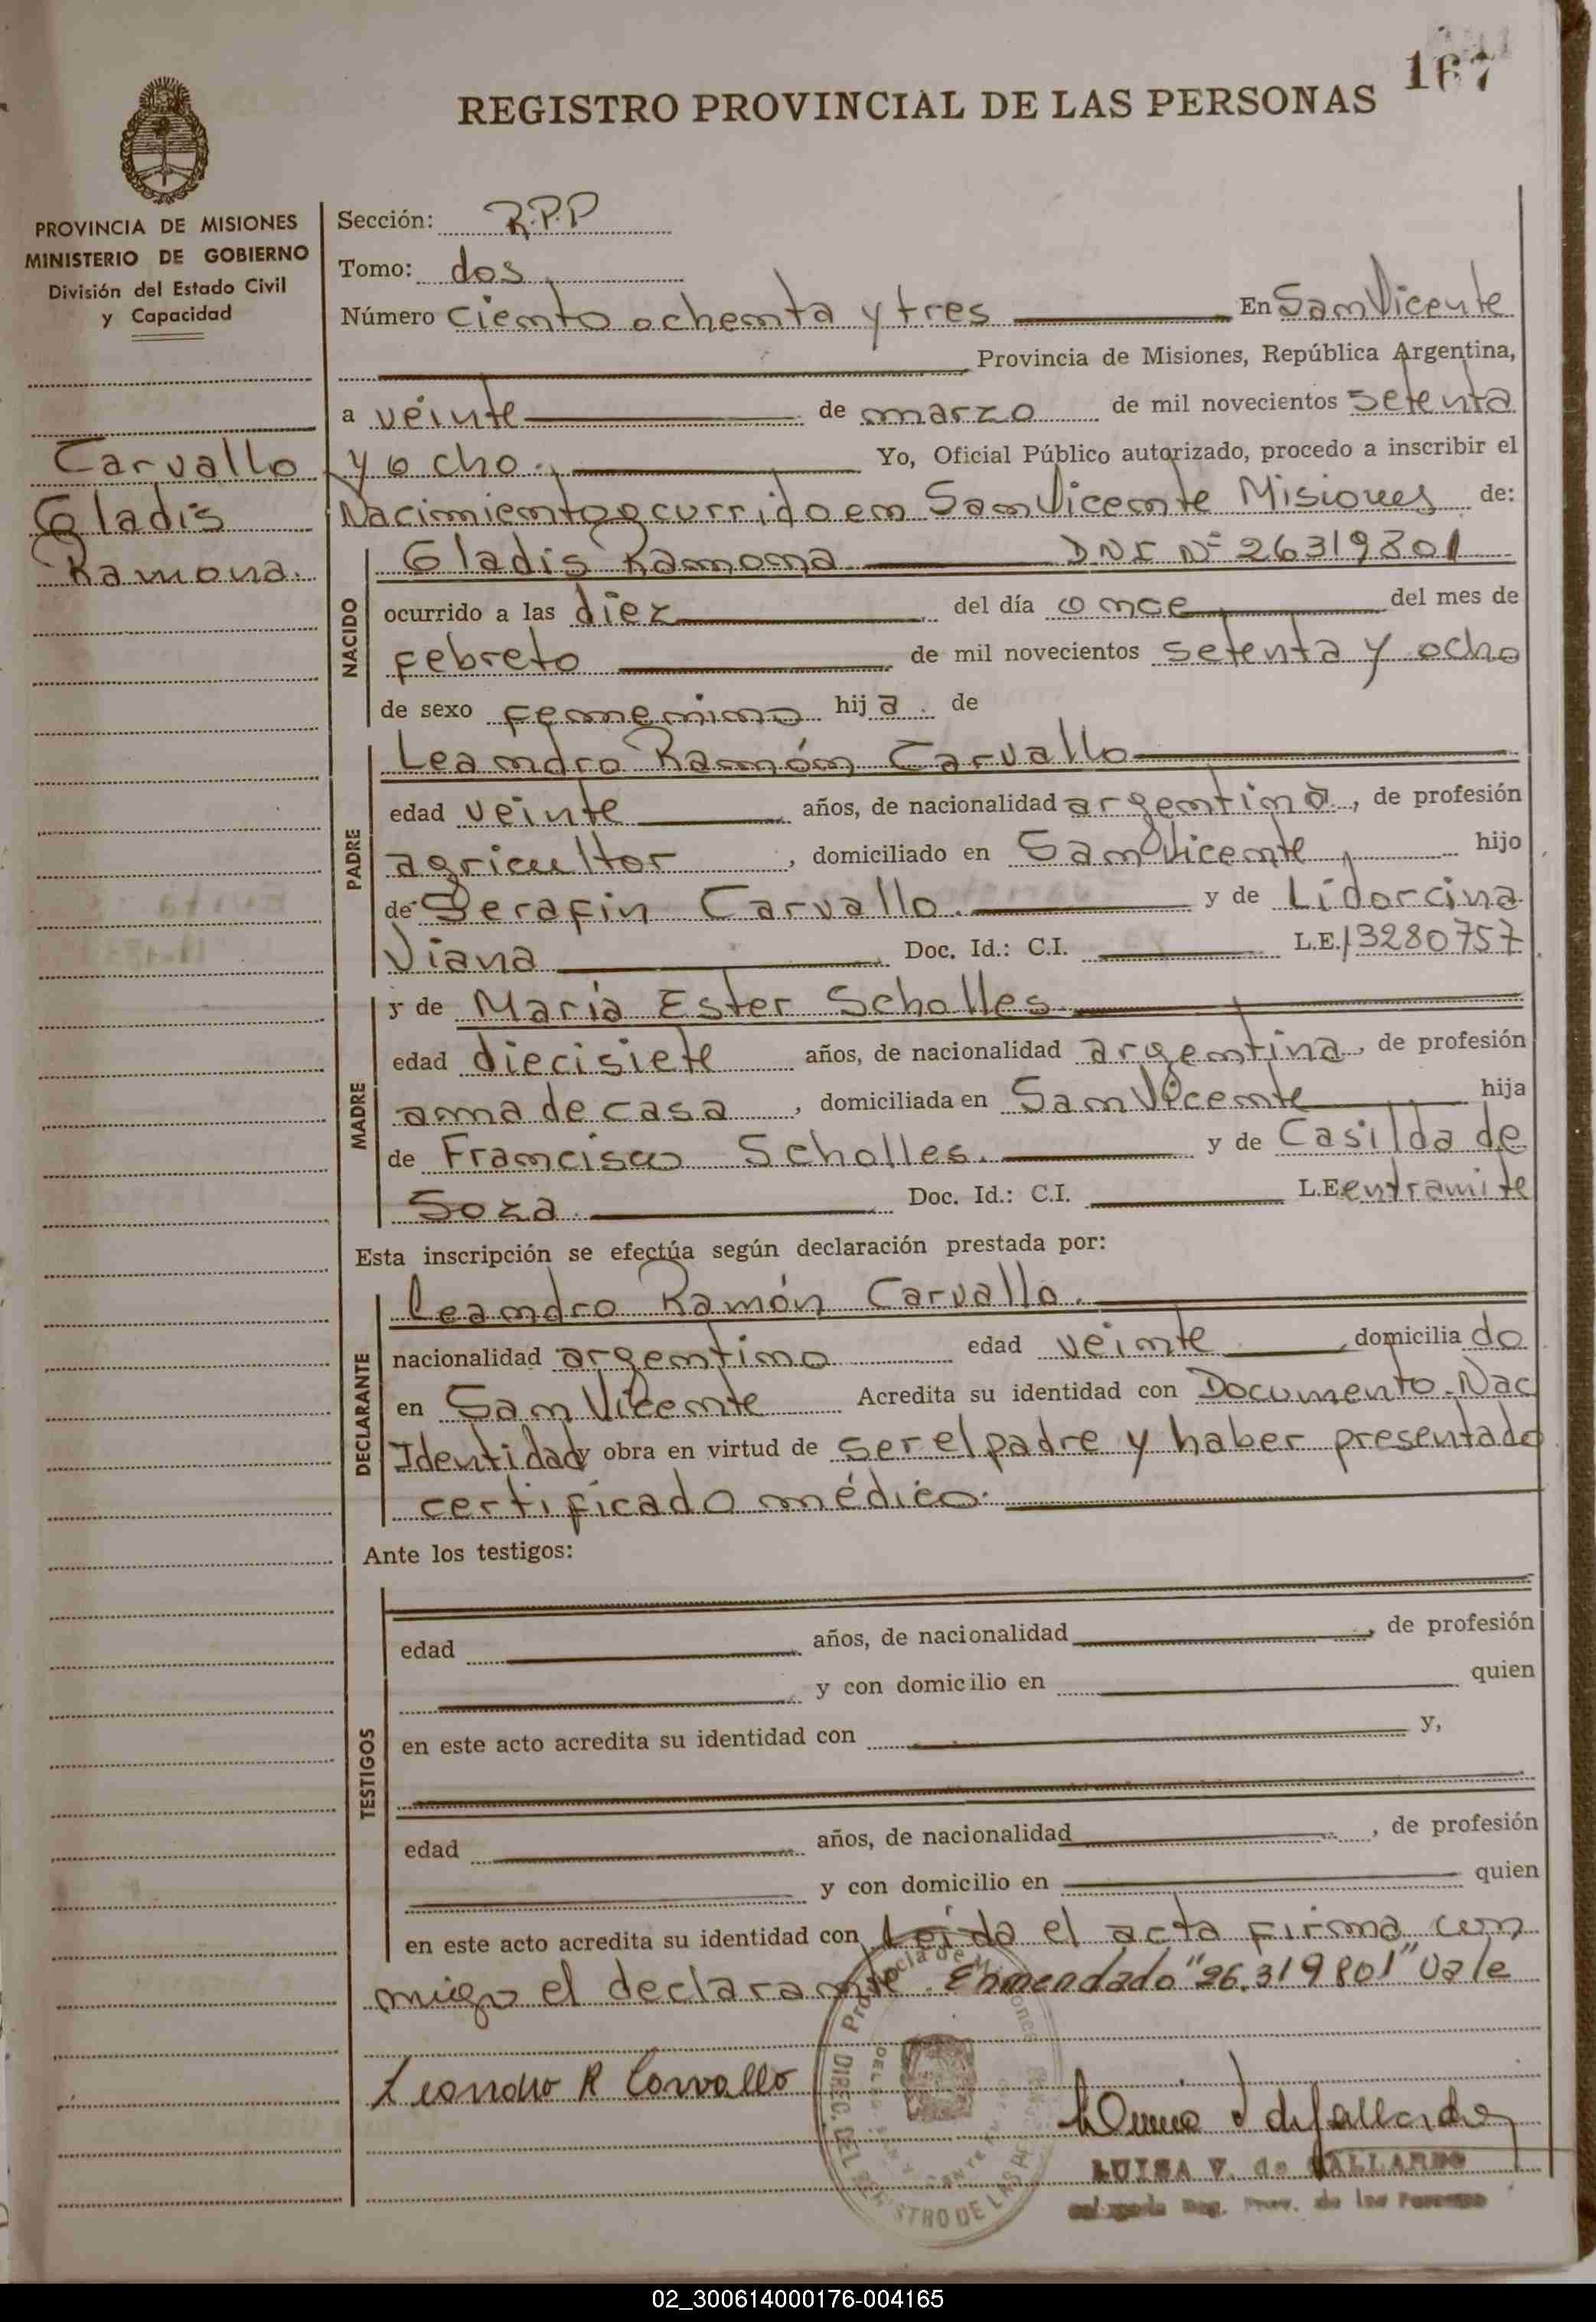 167
REGISTRO PROVINCIAL DE LAS PERSONAS
PROVINCIA DE MISIONES
MINISTERIO DE GOBIERNO
División del Estado Civil
y Capacidad
Carvallo
Gladis
Ramona.
Sección: R.P.P
Tomo: dos
Número ciento ochenta y tres En San Vicente
Provincia de Misiones, República Argentina,
a veinte de marzo de mil novecientos setenta
y ocho. Yo, Oficial Público autorizado, procedo a inscribir el
Nacimiento ocurrido en San Vicente Misiones de:
NACIDO
Gladis Ramona DNI Nº 26319801
ocurrido a las diez del día once del mes de
febrero de mil novecientos setenta y ocho
de sexo femenino hija. de
PADRE
Leandro Ramón Carvallo
edad veinte años, de nacionalidad argentina, de profesión
agricultor, domiciliado en San Vicente, hijo
de Serafin Carvallo. y de Lidorcina
Viana Doc. Id.: C.I. L.E. 13280757
MADRE
y de María Ester Scholles
edad diecisiete años, de nacionalidad argentina, de profesión
ama de casa, domiciliada en San Vicente hija
de Francisco Scholles. y de Casilda de
Soza. Doc. Id.: C.I. L.E. en tramite
Esta inscripción se efectúa según declaración prestada por:
DECLARANTE
Leandro Ramón Carvallo.
nacionalidad argentino edad veinte, domiciliado
en San Vicente Acredita su identidad con Documento Nac
Identidad y obra en virtud de ser el padre y haber presentado
certificado médico.
Ante los testigos:
TESTIGOS
edad años, de nacionalidad, de profesión
y con domicilio en quien
en este acto acredita su identidad con y,
edad años, de nacionalidad, de profesión
y con domicilio en quien
en este acto acredita su identidad con Leída el acta firma con
migo el declarante. Enmendado "26.319801" Vale
Leandro R Carvallo
Provincia de Misiones
DIREC. DEL REGISTRO DE LAS
LUISA V. de GALLARDO
Reg. Prov. de las Personas
02_300614000176-004165